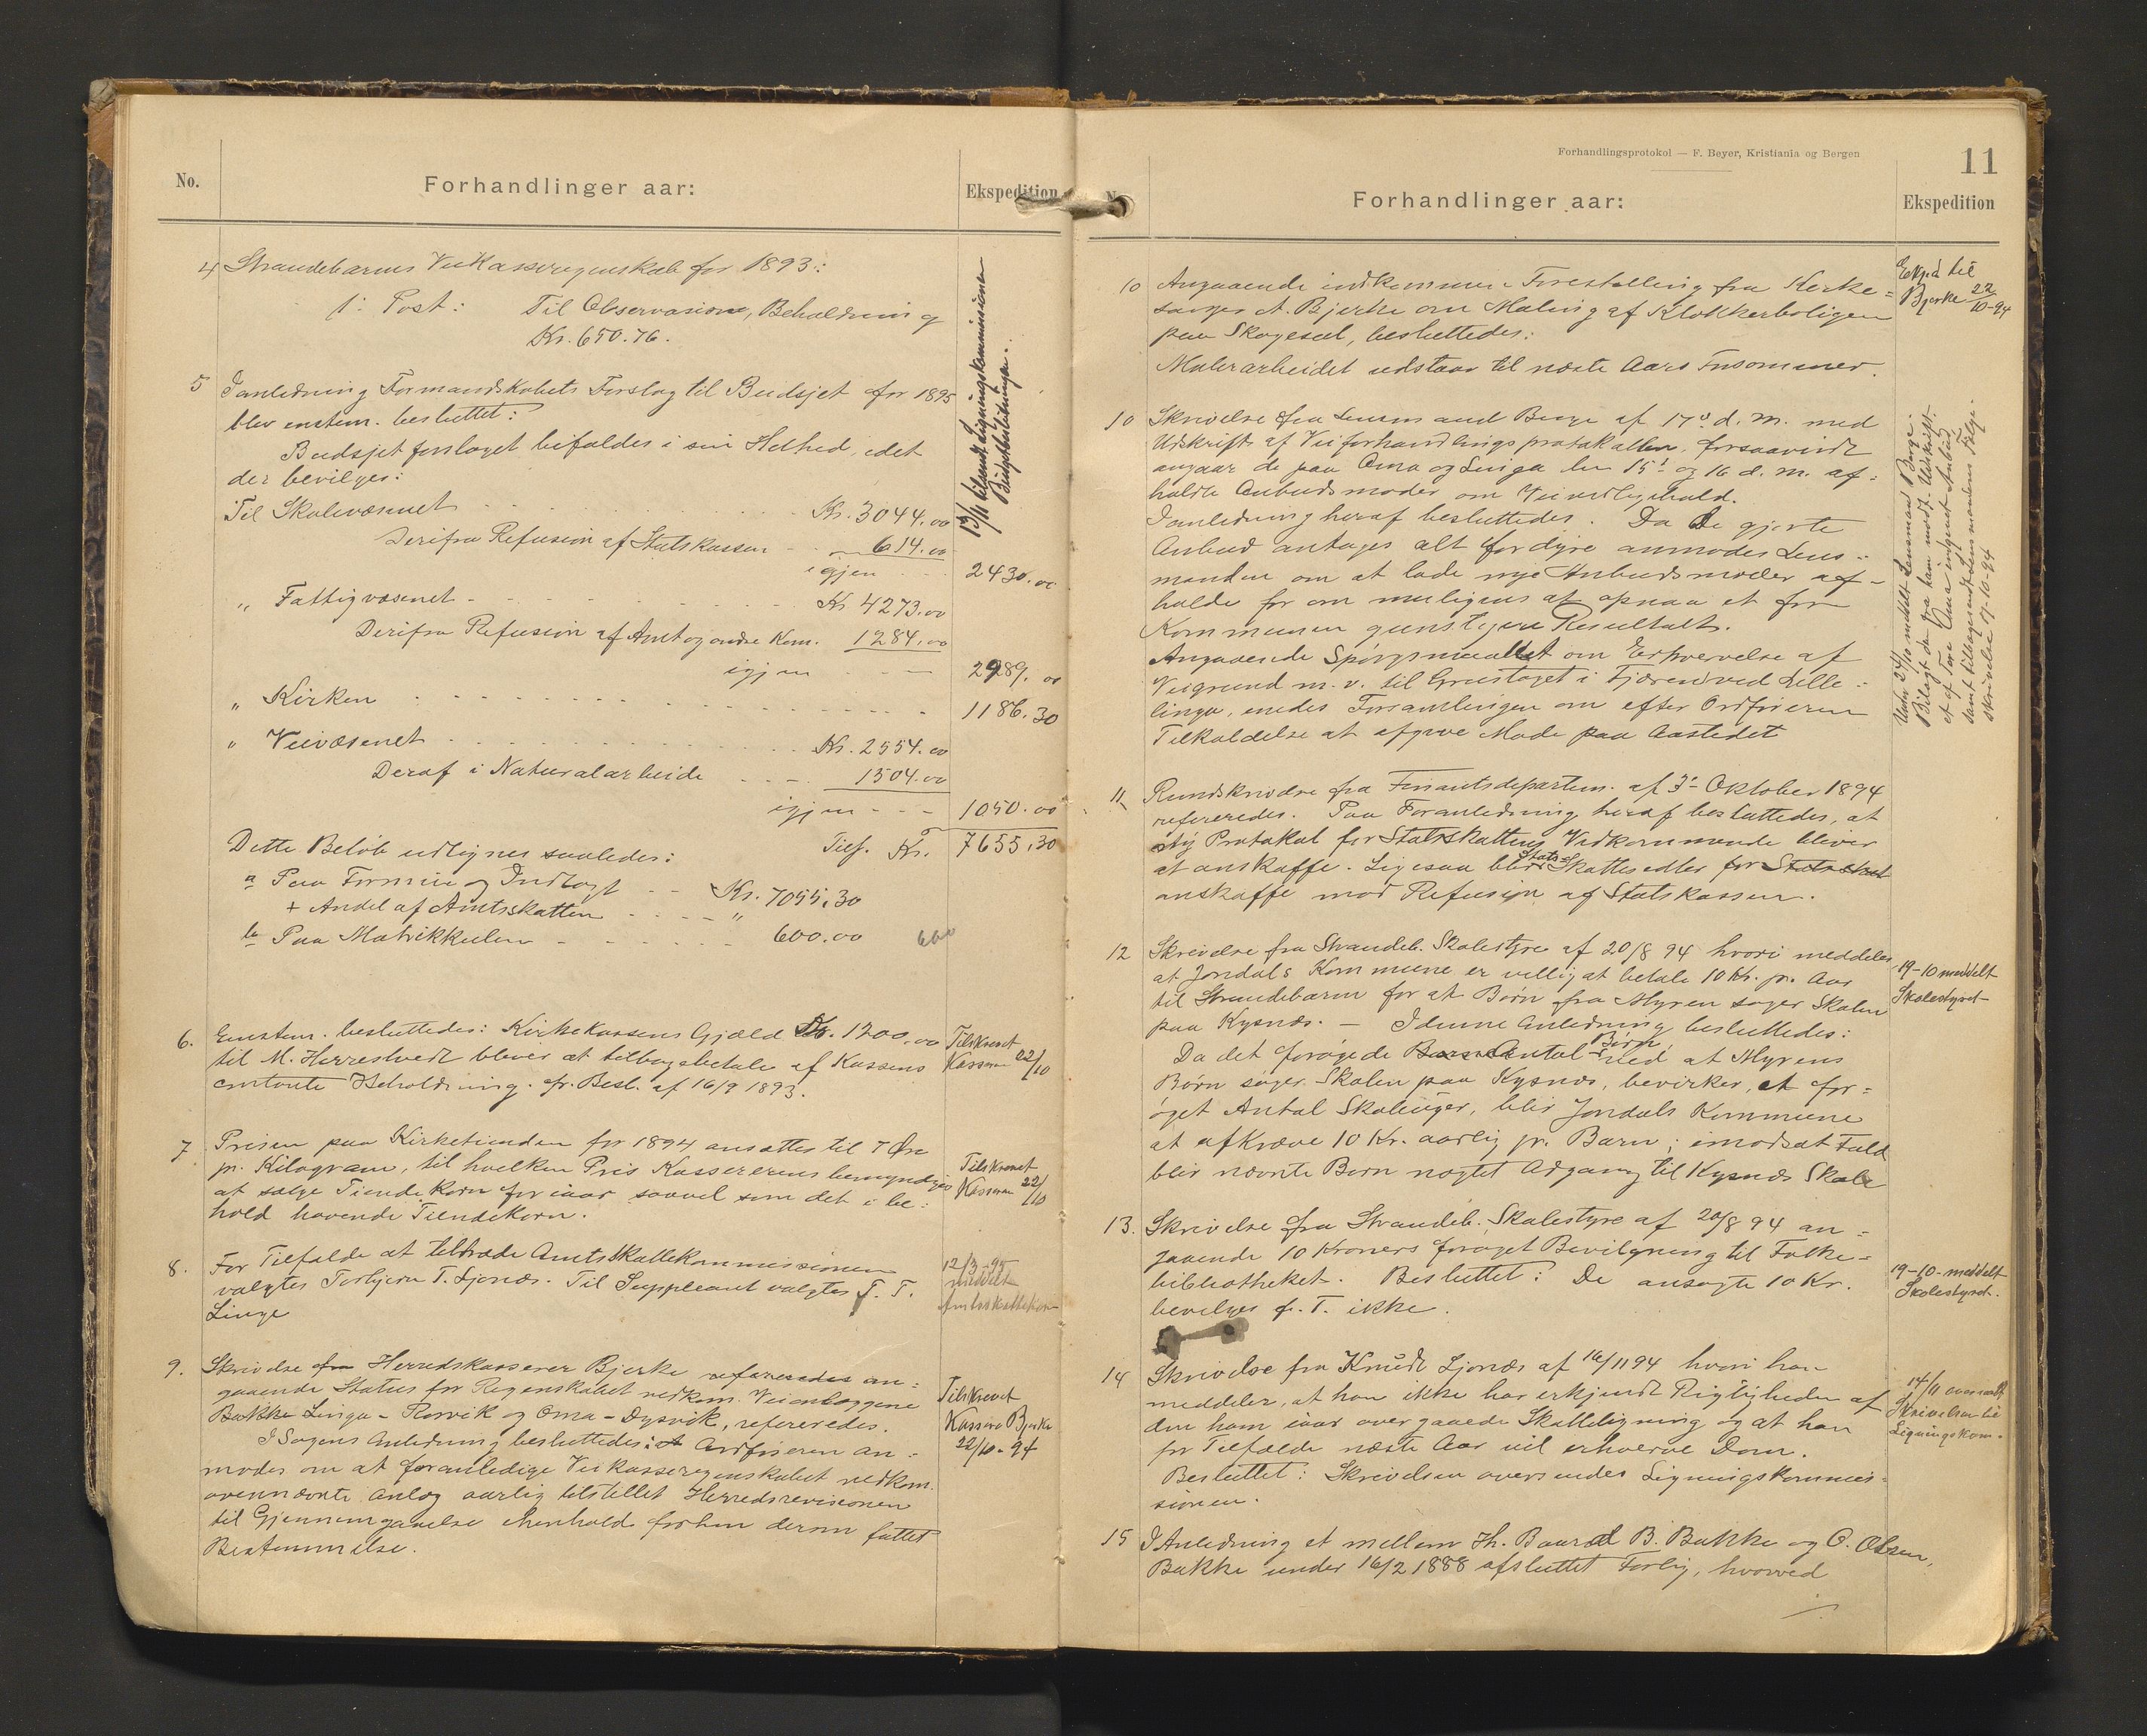 No.
Forhandlinger aar:
Ekspedition
4 Strandebarms Veikasseregnskab for 1893:
1. Post: Til Observasion, Beholdning
Kr. 650.76.
5 I anledning Formandskabets Forslag til Budsjet for 1895
blev enstem. besluttet:
Budsjetforslaget bifaldes i sin Helhed, idet
der bevilges:
Til Skolevæsenet Kr. 3044.00
Derifra Refusion af Statskassen 614.00
igjen 2430.00
" Fattigvæsenet Kr 4273.00
Derifra Refusion af Amt og andre Kom. 1284.00
igjen 2989.00
" Kirken 1186.30
" Veivæsenet Kr. 2554.00
Deraf i Naturalarbeide 1504.00
igjen 1050.00
Tils. Kr. 7655.30
Dette Beløb udlignes saaledes:
a Paa Formue og Indtægt Kr. 7055.30
+ Andel af Amtsskatten "
b Paa Matrikkulen 600.00 600
13/11 tilsendt Ligningskommissionen
Budgetbeslutningen.
6. Enstem. besluttedes: Kirkekassens Gjæld Kr. 1200,00
til M. Herrestvedt bliver at tilbagebetale af Kassens
contante Beholdning. cfr. Besl. af 16/9 1893.
Tilskrevet
Kasseren 22/10
7 Prisen paa Kirketienden for 1894 ansattes til 7 Øre
pr. Kilogram, til hvilken Pris Kassererens bemyndiges
at sælge Tiendekorn for iaar saavel som det i be-
hold havende Tiendekorn.
Tilskrevet
Kasseren 22/10
8. For Tilfælde at tiltræde Amtsskattekommissionen
valgtes Torbjørn T. Ljonæs. Til Suppleant valgtes T. T.
Linge
12/3-95
meddelt
Amtsskattekom
9. Skrivelse fra Herredskasserer Bjerke refereredes an-
gaaende Status for Regnskabet vedkom. Veianlæggene
Bakke Linga - Rørvik og Oma - Dysvik, refereredes.
I Sagens Anledning besluttedes: At Ordføreren an-
modes om at foranledige Veikasseregnskabet vedkom.
ovennævnte Anlæg aarlig tilstillet Herredsrevisionen
til Gjennemgaaelse i henhold før hen derom fattet
Bestemmelse.
Tilskrevet
Kasserer Bjerke
22/10-94
Forhandlingsprotokol — F. Beyer, Kristiania og Bergen
11
Forhandlinger aar:
Ekspedition
10 Angaaende indkommen Forestilling fra Kirke-
sanger A. Bjerke om Maling af Klokkerboligen
paa Skogesæl, besluttedes:
Malerarbeidet udstaar til næste Aars Forsommer.
Eksp.d til
Bjerke 22/10-94
10 Skrivelse fra Lensmand Berge af 17de d. M. med
Udskrift af Veiforhandlingsprotokollen, forsaavidt
angaar de paa Oma og Linga den 15de og 16 d. m. af-
holdte Anbudsmøder om Veivedligehold.
I anledning heraf besluttedes. Da de gjorte
Anbud antages alt for dyre anmodes Lens-
manden om at lade nye Anbudsmøder af-
holde for om muligens at opnaa et for
Kommunen gunstigere Resultat.
Angaaende Spørgsmaalet om Erhvervelse af
Veigrund m. v. til Grustaget i Fjæren ved Lille-
linga, enedes Forsamlingen om efter Ordføreren
Tilkaldelse at afgive Møde paa Aastedet
Under 24/10 meddelt Lensmand Berge
Bilagt den fra ham modt. Udskrift.
et af Tore Oma indgivet Anbud
samt tilbagesendt Lensmandens Følge-
skrivelse 17-10-94
11 Rundskrivelse fra Finantsdepartem. af 3' Oktober 1894
refereredes. Paa Foranledning heraf besluttedes, at
ny Protokol for Statsskattens Vedkommende bliver
at anskaffe. Ligesaa blir Stats-Skattesedler for Statsskat
anskaffe mod Refusion af Statskassen.
12 Skrivelse fra Strandeb. Skolestyre af 20/8 94 hvori meddeles
at Jondals Kommune er villig at betale 10 Kr. pr. Aar
til Strandebarm for at Børn fra Myren søger Skolen
paa Kysnæs. — I denne Anledning besluttedes:
Da det forøgede Børn Antal Børn ved at Myrens
Børn søger Skolen paa Kysnæs, bevirker, et for-
øget Antal Skoleuger, blir Jondals Kommune
at afkræve 10 Kr. aarlig pr. Barn; i modsat Fald
blir nævnte Børn nægtet Adgang til Kysnæs Skole
19-10 meddelt
Skolestyret
13. Skrivelse fra Strandeb. Skolestyre af 20/8 94 an-
gaaende 10 Kroners forøget Bevilgning til Folke-
bibliotheket. Besluttet: De ansøgte 10 Kr.
bevilges p. T. ikke.
19-10-meddelt
Skolestyret.
14 Skrivelse fra Knudt Ljonæs af 16/11 94 hvori han
meddeler, at han ikke har erkjendt Rigtigheden af
den ham iaar overgaaede Skatteligning og at han
for Tilfælde næste Aar vil erhverve Dom.
Besluttet: Skrivelsen oversendes Ligningskommis-
sionen.
14/11 oversendt
Skrivelsen til
Ligningskom.
15 I Anledning et mellem Th. Baard B. Bakke og O. Olsen,
Bakke under 16/2 1888 afsluttet Forlig, hvorved